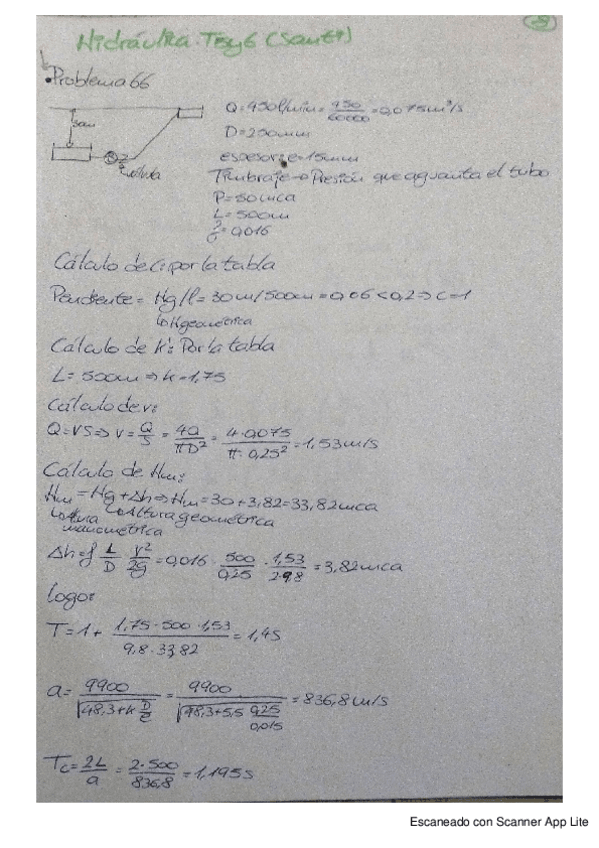 Hidráulica. T5y6 (Santi)
Problema 66
30m
Q=450l/min=450/60000=0,075m³/s
D=250mm
espesor=e=15mm
Timbraje→Presión que aguanta el tubo
P=50mca
L=500m
f=0,016
Cálculo de C: por la tabla
Pendiente = Hg/l=30m/500m=0,06<0,2⇒C=1
↳Hgeométrica
Cálculo de K: Por la tabla
L=500m⇒k=1,75
Cálculo de v:
Q=VS⇒V=Q/S=4Q/πD²=4·0,075/π·0,25²=1,53m/s
Cálculo de Hm:
Hm=Hg+Δh⇒Hm=30+3,82=33,82mca
↳Altura manométrica ↳Altura geométrica
Δh=f L/D V²/2g=0,016·500/0,25·1,53/2·9,8=3,82mca
luego:
T=1+ 1,75·500·1,53/9,8·33,82=1,45
a=9900/√48,3+k D/e=9900/√48,3+5,5 0,25/0,015=836,8m/s
Tc=2L/a=2·500/836,8=1,195s
Escaneado con Scanner App Lite